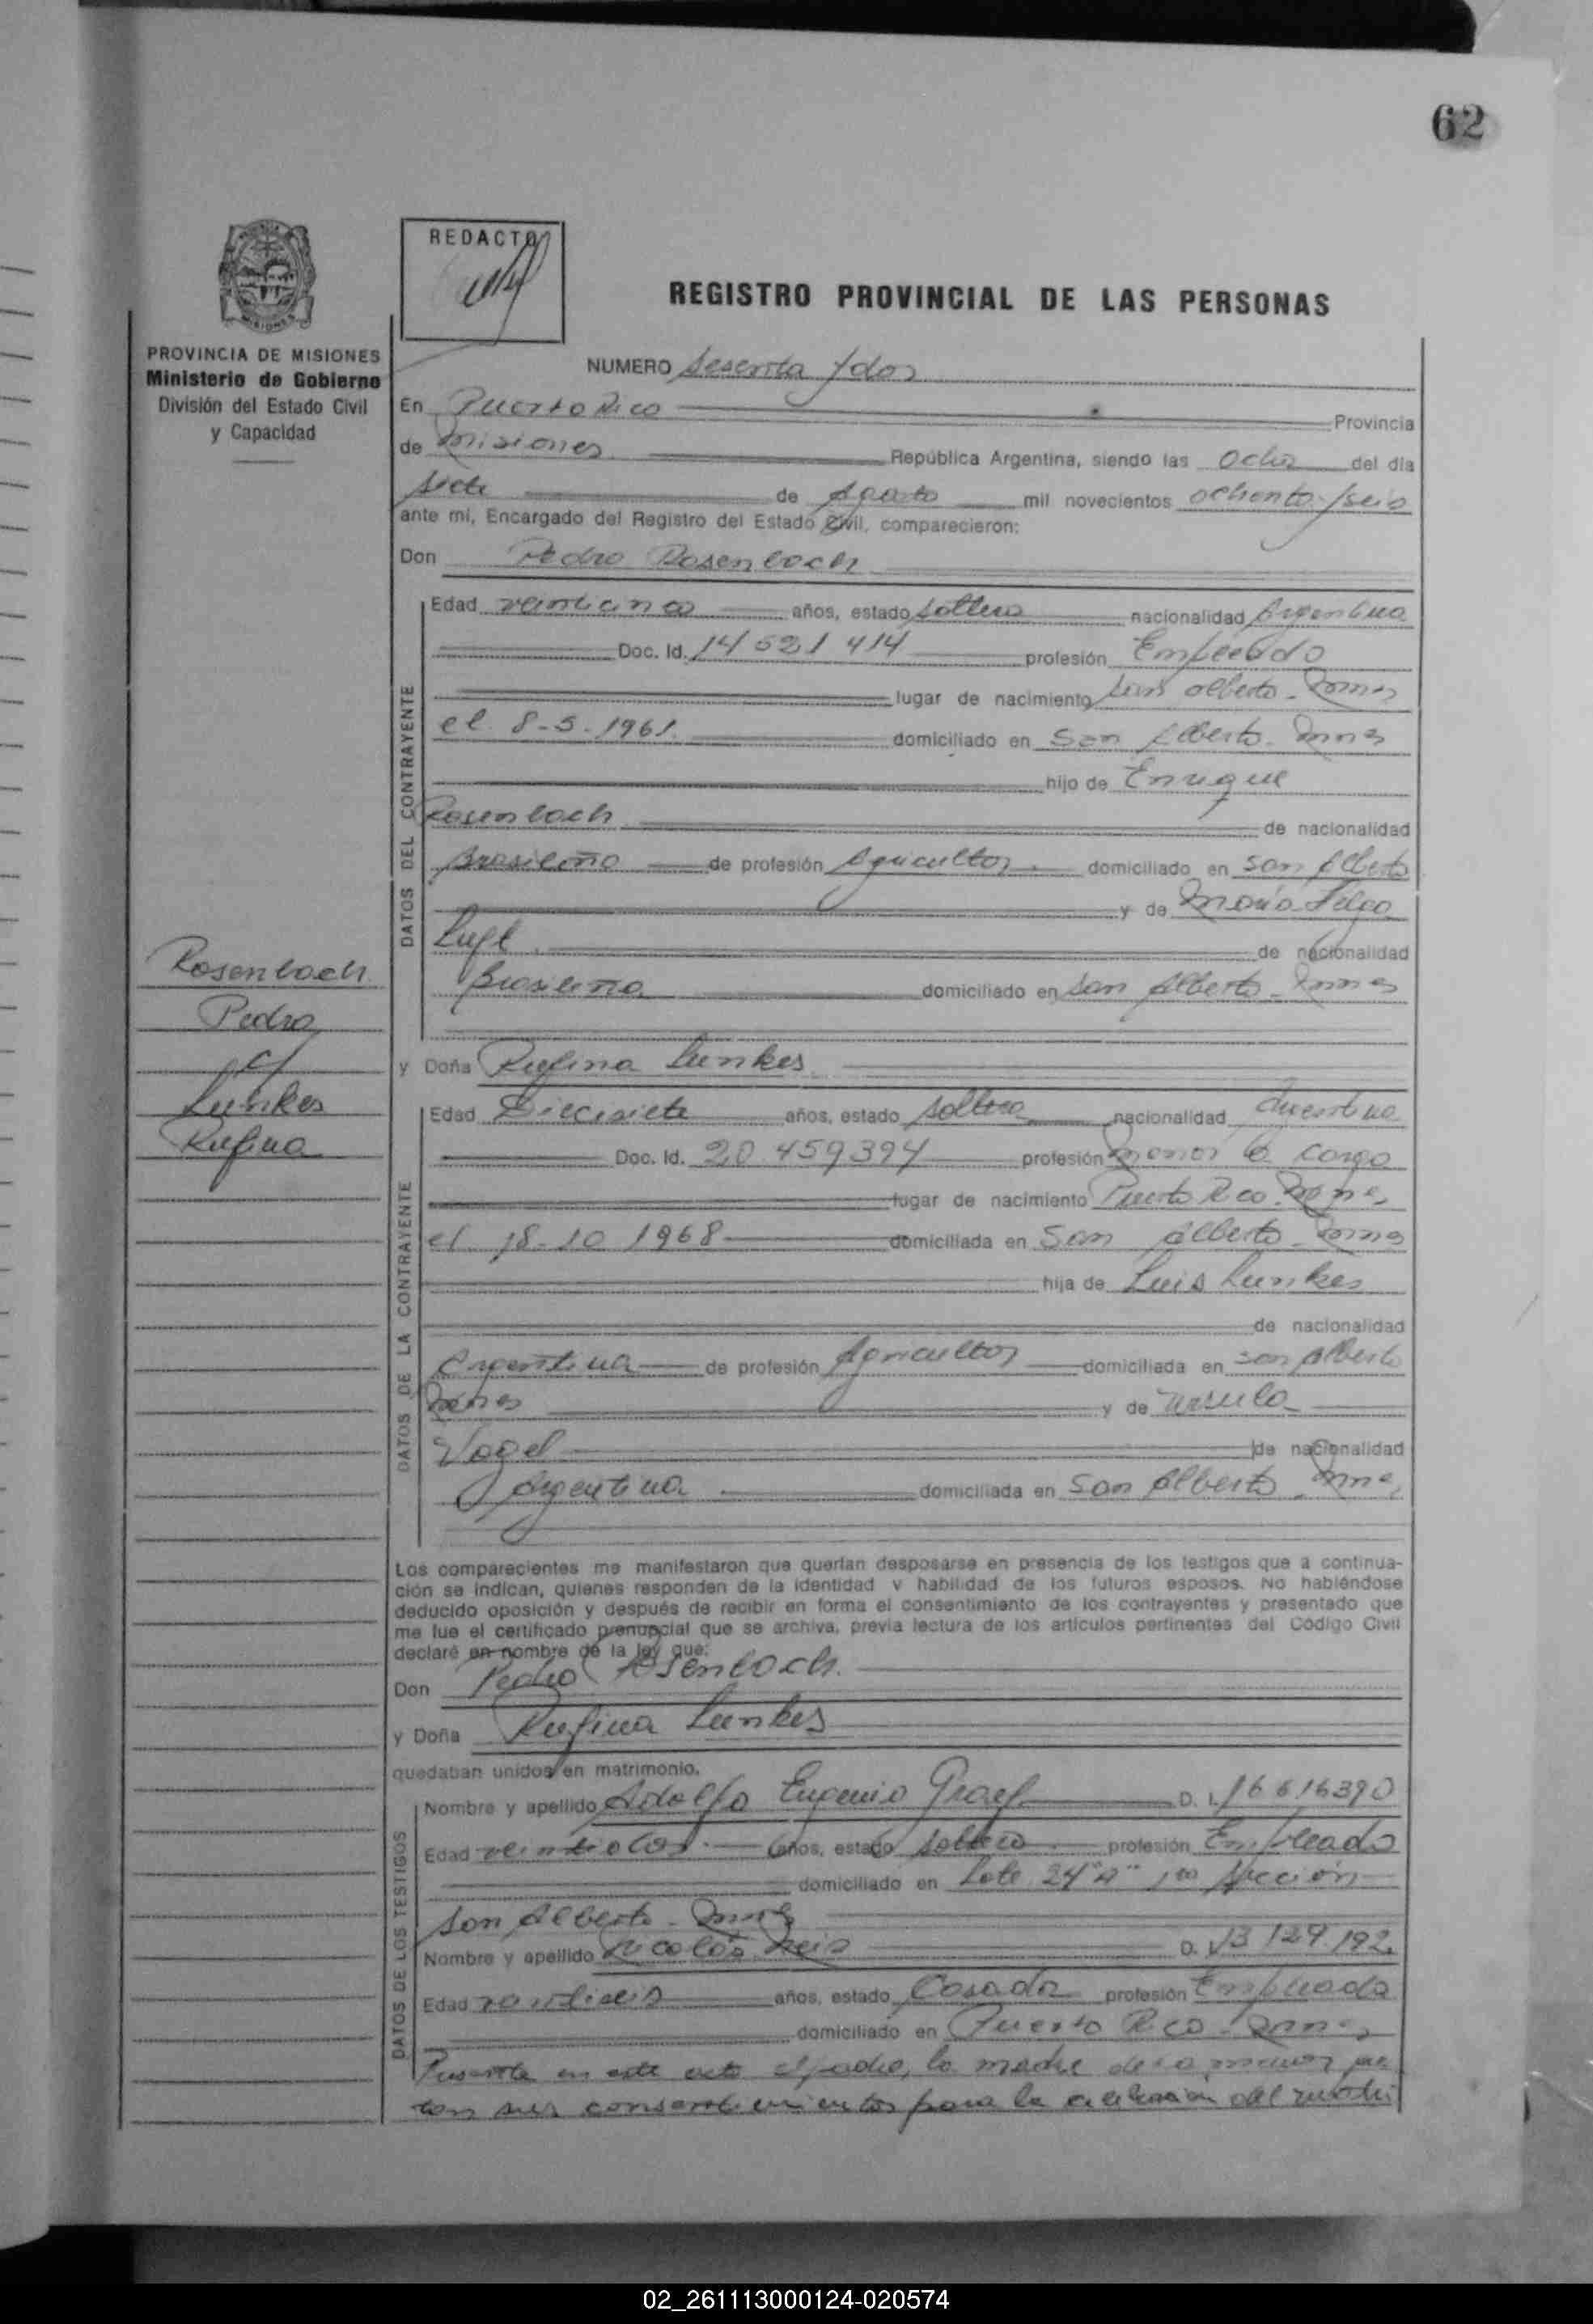 62
REDACTO
REGISTRO PROVINCIAL DE LAS PERSONAS
MISIONES
PROVINCIA DE MISIONES
Ministerio de Gobierno
División del Estado Civil
y Capacidad
NUMERO Sesenta y dos
En Puerto Rico Provincia
de Misiones República Argentina, siendo las Ocho del día
siete de Agosto mil novecientos ochenta y seis
ante mí, Encargado del Registro del Estado Civil, comparecieron:
Don Pedro Rosenbach
DATOS DEL CONTRAYENTE
Edad veinticinco años, estado soltero nacionalidad Argentina
Doc. Id. 14 521 414 profesión Empleado
lugar de nacimiento alberto - Mnes
el 8-5-1961. domiciliado en San Alberto - Mnes
hijo de Enrique
Rosenbach de nacionalidad
Brasileño de profesión Agricultor domiciliado en San Alberto
y de María Helga
Luft de nacionalidad
Brasileña domiciliado en San Alberto - Mnes
Rosenbach
Pedro
c/
Lunkes
Rufina
y Doña Rufina Lunkes
DATOS DE LA CONTRAYENTE
Edad Diecisiete años, estado soltera nacionalidad Argentina
Doc. Id. 20.459394 profesión cargo
lugar de nacimiento Puerto Rico Mnes
el 18-10 1968 domiciliada en San Alberto - Mnes
hija de Luis Lunkes
de nacionalidad
Argentina de profesión Agricultor domiciliada en San Alberto
Mnes y de Ursula
Vogel de nacionalidad
Argentina domiciliada en San Alberto - Mnes
Los comparecientes me manifestaron que querían desposarse en presencia de los testigos que a continua-
ción se indican, quienes responden de la identidad y habilidad de los futuros esposos. No habiéndose
deducido oposición y después de recibir en forma el consentimiento de los contrayentes y presentado que
me fue el certificado prenupcial que se archiva, previa lectura de los artículos pertinentes del Código Civil
declaré en nombre de la ley que:
Don Pedro Rosenbach.
y Doña Rufina Lunkes
quedaban unidos en matrimonio.
DATOS DE LOS TESTIGOS
Nombre y apellido Adolfo Eugenio Graef D. I. 16616390
Edad veintidos años, estado soltero profesión Empleado
domiciliado en Lote 24 "A" 1ra Sección
San Alberto - Mnes
Nombre y apellido Nicolás Reis D. I. 13 129.192
Edad veintiseis años, estado Casado profesión Empleado
domiciliado en Puerto Rico - Mnes
Presente en este acto el padre, la madre de la menor
sus consentimientos para la celebración del
02_261113000124-020574